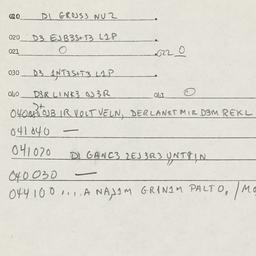 020 D1 GRUSS NUZ
020 D3 EJB3S+T3 L1P
021 O 022 O
030 D3 1NT3S+T3 L1P
040 D3R L1NK3 OJ3R 041 O
040 OB IR VOLT VELN, DERLANKT MIR D3M REKL
041 040 —
041 020 D1 GANC3 2EJ3R3 UNT1N
040 030 —
044 100 ... A NAJ1M GR1N1M PALTO, / MO